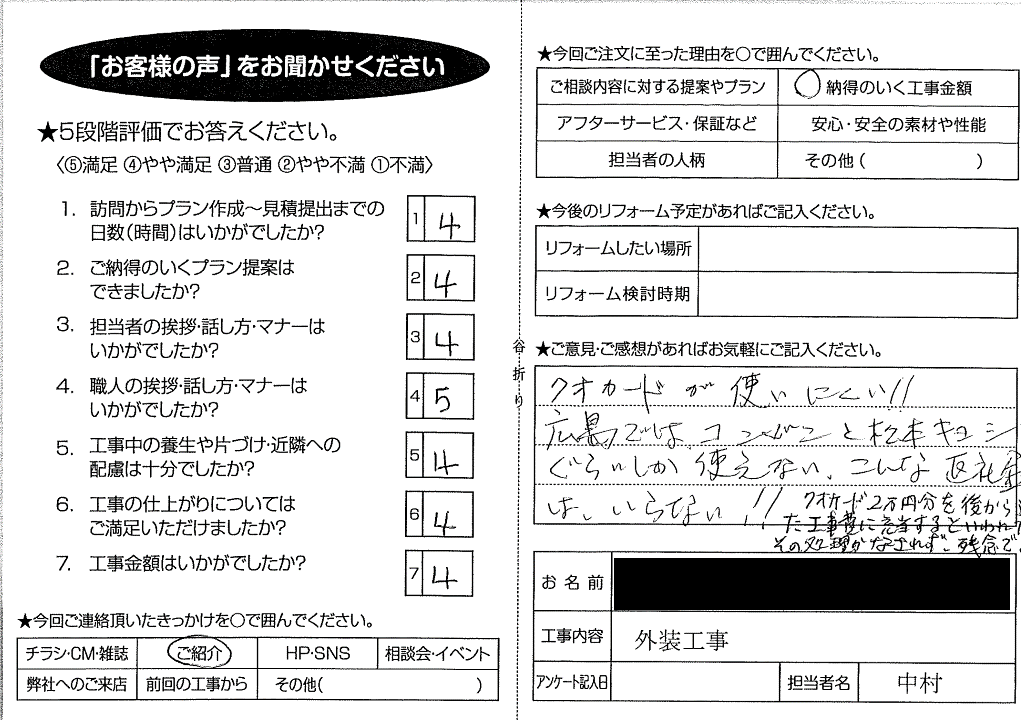 「お客様の声」をお聞かせください
★5段階評価でお答えください。
〈⑤満足 ④やや満足 ③普通 ②やや不満 ①不満〉
1. 訪問からプラン作成～見積提出までの
日数(時間)はいかがでしたか?
1 4
2. ご納得のいくプラン提案は
できましたか?
2 4
3. 担当者の挨拶・話し方・マナーは
いかがでしたか?
3 4
4. 職人の挨拶・話し方・マナーは
いかがでしたか?
4 5
5. 工事中の養生や片づけ・近隣への
配慮は十分でしたか?
5 4
6. 工事の仕上がりについては
ご満足いただけましたか?
6 4
7. 工事金額はいかがでしたか?
7 4
★今回ご連絡頂いたきっかけを○で囲んでください。
チラシ・CM・雑誌 ご紹介 HP・SNS 相談会・イベント
弊社へのご来店 前回の工事から その他( )
谷折り
★今回ご注文に至った理由を○で囲んでください。
ご相談内容に対する提案やプラン 納得のいく工事金額
アフターサービス・保証など 安心・安全の素材や性能
担当者の人柄 その他( )
★今後のリフォーム予定があればご記入ください。
リフォームしたい場所
リフォーム検討時期
★ご意見・ご感想があればお気軽にご記入ください。
クオカードが使いにくい!!
広島ではコンビニと松本キヨシ
ぐらいしか使えない、こんな返礼金
は、いらない!!
クオカード2万円分を後から
た工事費に充当するといわれ
その処理がなされず、残念で
お名前
工事内容 外装工事
アンケート記入日 担当者名 中村